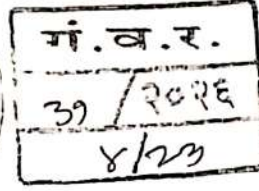 गं.व.र.
39 /२०१६
४/23